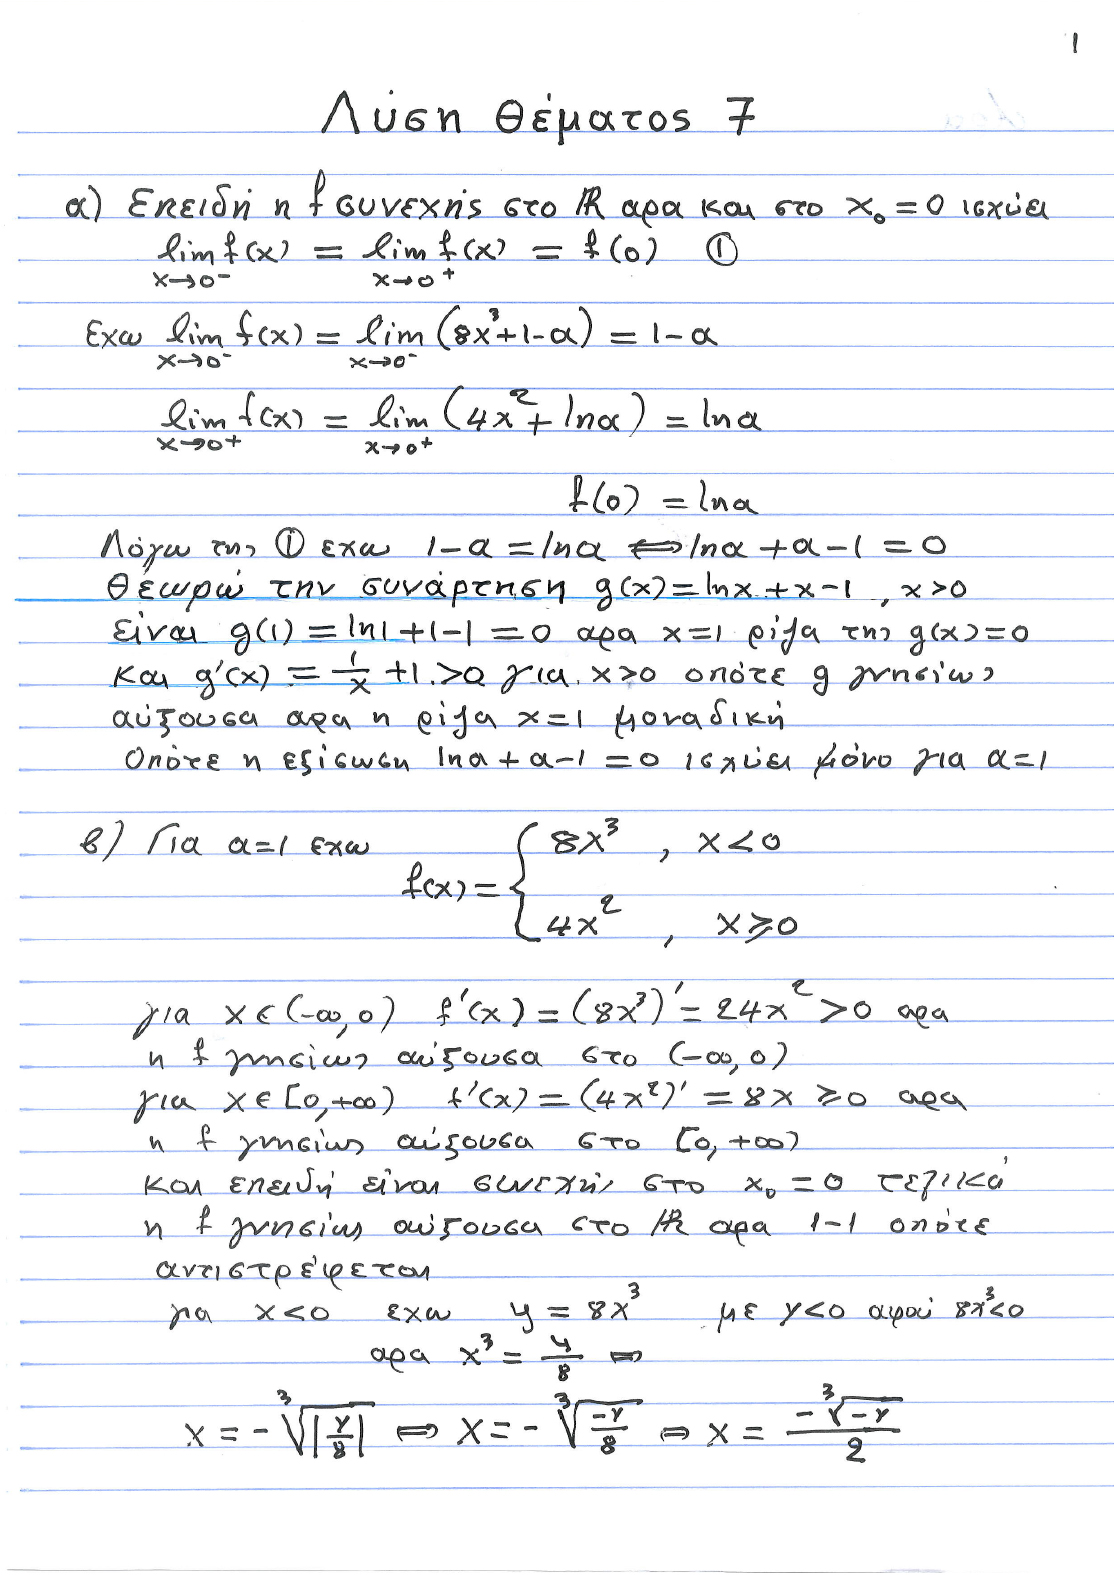 1
Λύση Θέματος 7
α) Επειδή η f συνεχής στο ℝ αρα και στο x₀ = 0 ισχύει
lim f(x) = lim f(x) = f(0) ①
x→0⁻ x→0⁺
Εχω lim f(x) = lim (8x³+1-α) = 1-α
x→0⁻ x→0⁻
lim f(x) = lim (4x² + lnα) = lnα
x→0⁺ x→0⁺
f(0) = lnα
Λόγω της ① εχω 1-α = lnα ⟺ lnα + α - 1 = 0
Θεωρώ την συνάρτηση g(x) = lnx + x - 1 , x > 0
Είναι g(1) = ln1 + 1 - 1 = 0 αρα x = 1 ρίζα της g(x) = 0
και g'(x) = 1/x + 1 > 0 για x > 0 οπότε g γνησίως
αύξουσα αρα η ρίζα x = 1 μοναδική
Οπότε η εξίσωση lnα + α - 1 = 0 ισχύει μόνο για α = 1
β) Για α = 1 εχω
f(x) = { 8x³ , x < 0
4x² , x ⩾ 0
για x ∈ (-∞, 0) f'(x) = (8x³)' = 24x² > 0 αρα
η f γνησίως αύξουσα στο (-∞, 0)
για x ∈ [0, +∞) f'(x) = (4x²)' = 8x ⩾ 0 αρα
η f γνησίως αύξουσα στο [0, +∞)
και επειδή είναι συνεχής στο x₀ = 0 τελικά
η f γνησίως αύξουσα στο ℝ αρα 1-1 οπότε
αντιστρέφεται
για x < 0 εχω y = 8x³ με y < 0 αφού 8x³ < 0
αρα x³ = y/8 ⟺
x = -∛|y/8| ⟺ x = -∛(-y/8) ⟺ x = -∛(-y)/2